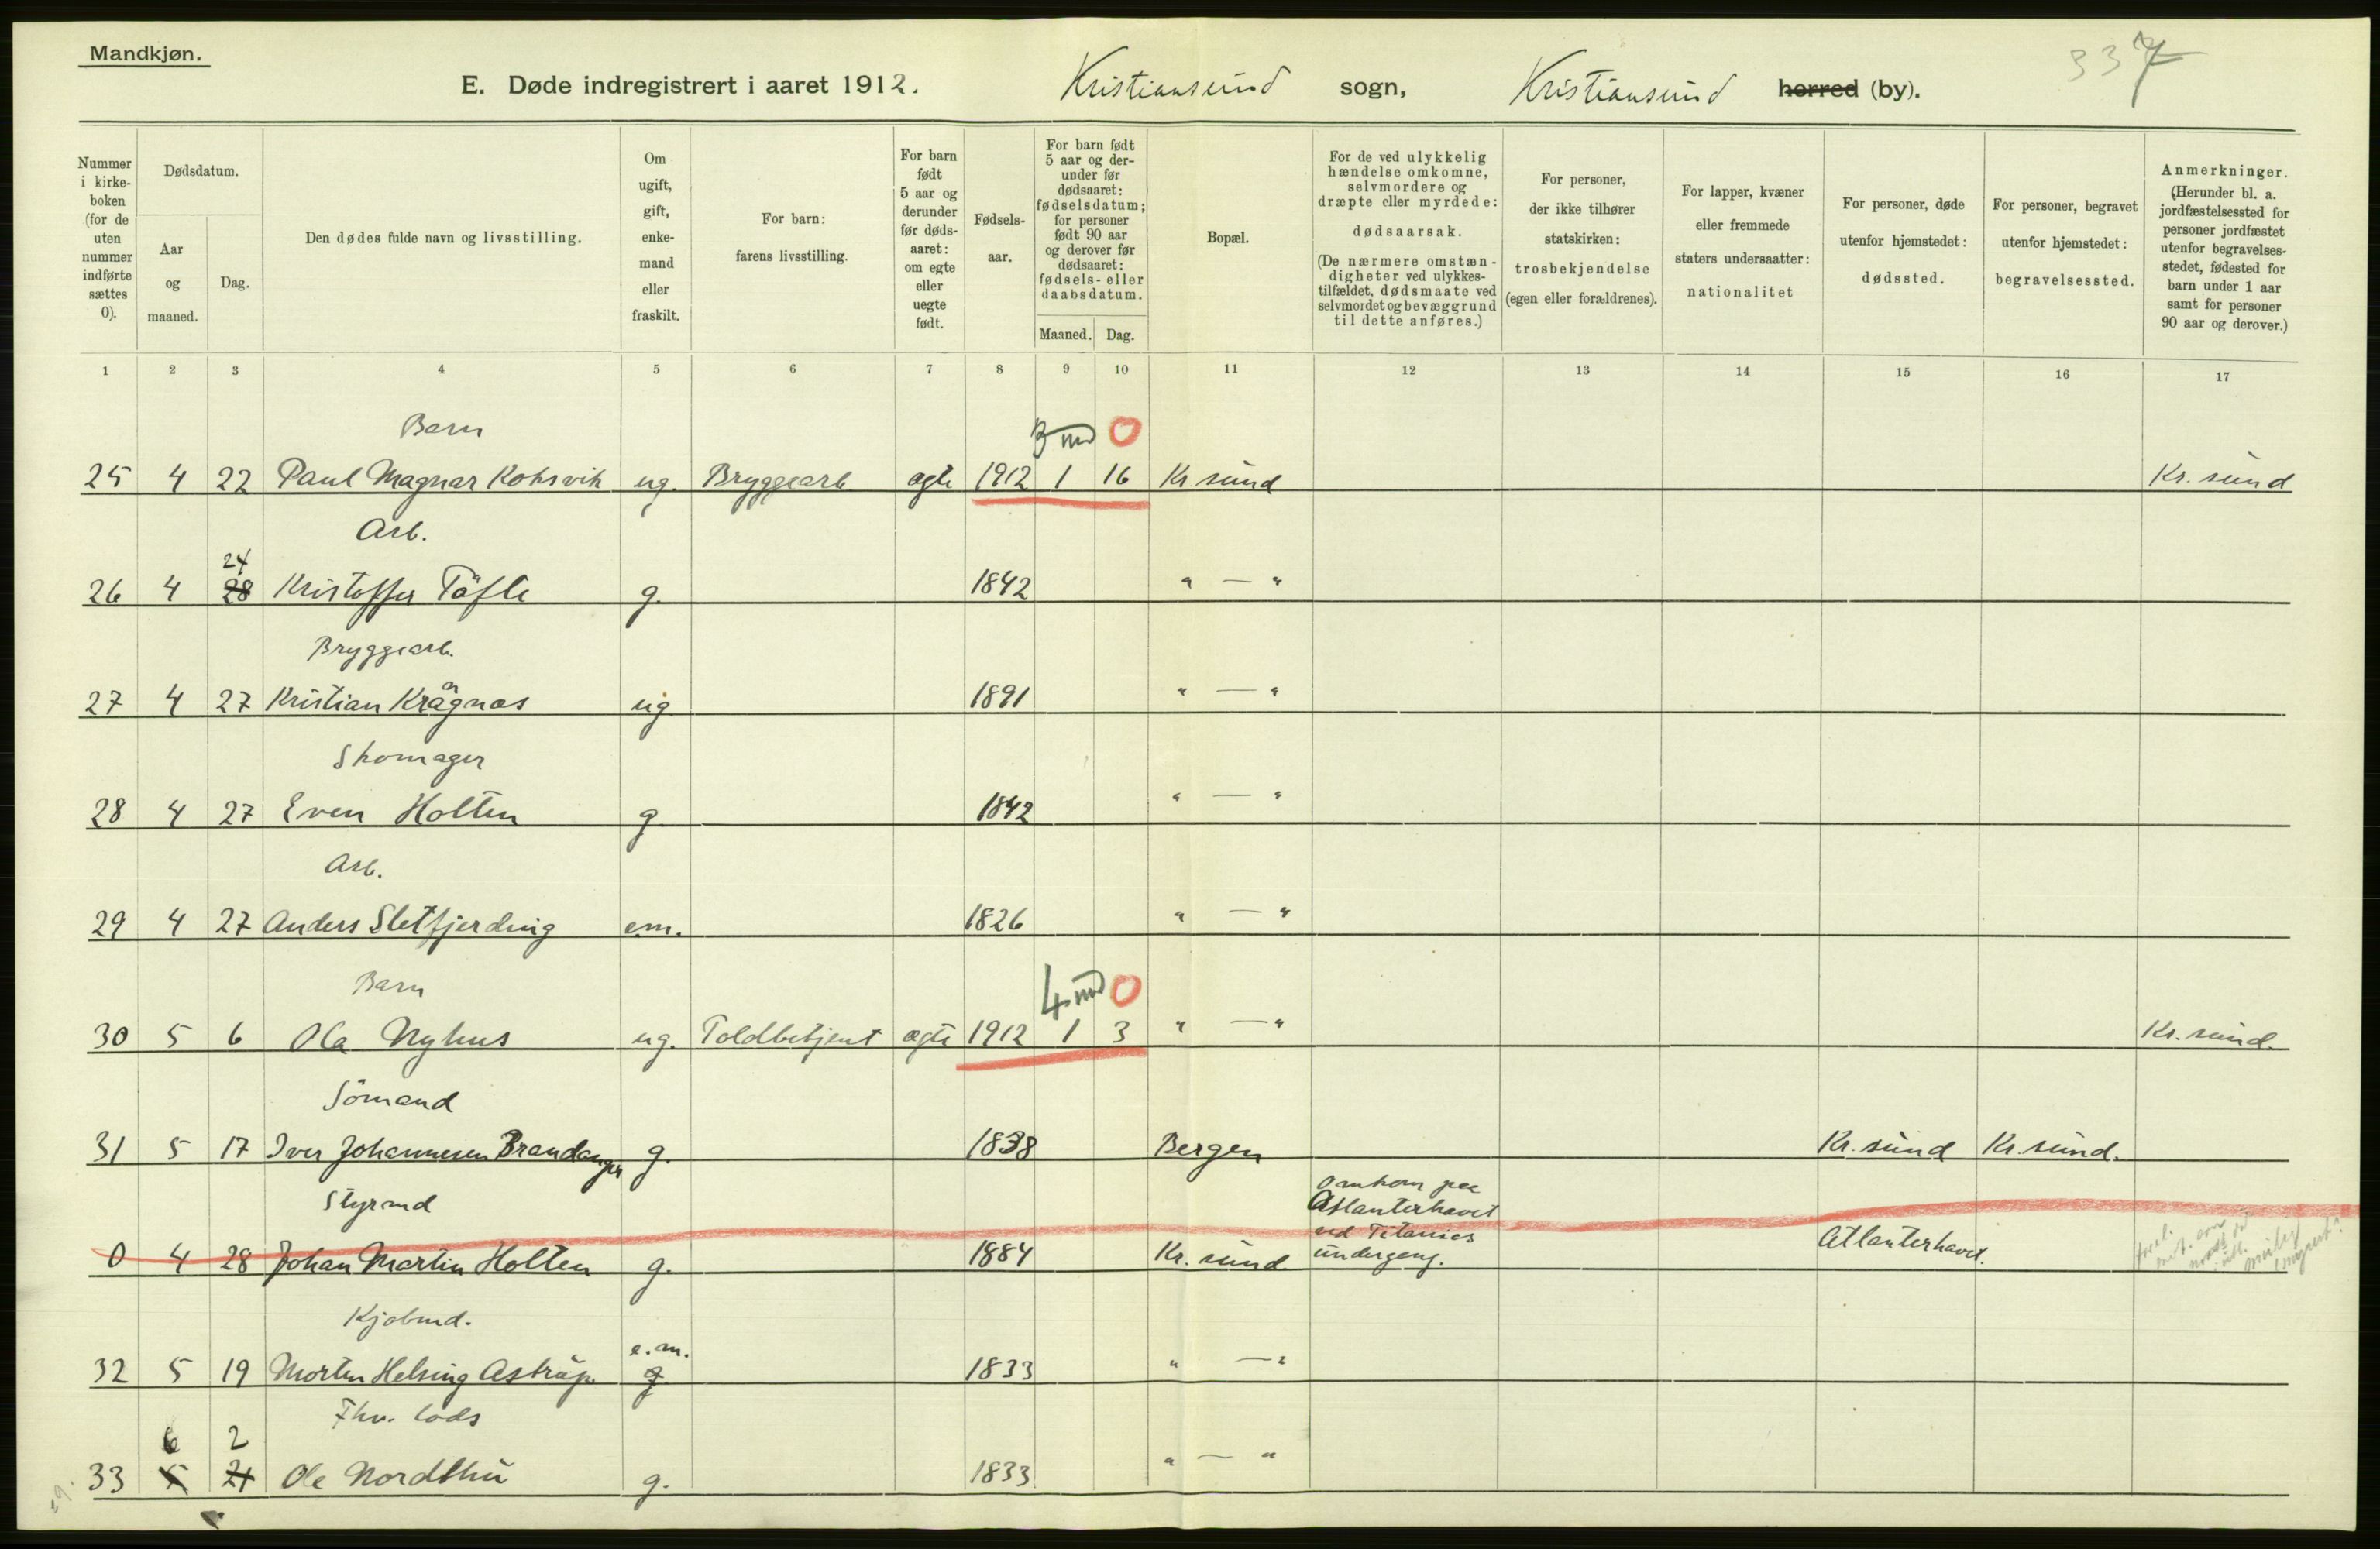 Mandkjøn.
E. Døde indregistrert i aaret 1912. Kristiansund sogn, Kristiansund herred (by).
337
Nummer i kirke-boken (for de uten nummer indførte sættes 0).
Dødsdatum.
Aar og maaned.
Dag.
Den dødes fulde navn og livsstilling.
Om ugift, gift, enke-mand eller fraskilt.
For barn: farens livsstilling.
For barn født 5 aar og derunder før døds-aaret: om egte eller uegte født.
Fødsels-aar.
For barn født 5 aar og der-under før dødsaaret: fødselsdatum; for personer født 90 aar og derover før dødsaaret: fødsels- eller daabsdatum.
Maaned. Dag.
Bopæl.
For de ved ulykkelig hændelse omkomne, selvmordere og dræpte eller myrdede: dødsaarsak. (De nærmere omstæn-digheter ved ulykkes-tilfældet, dødsmaate ved selvmordet og bevæggrund til dette anføres.)
For personer, der ikke tilhører statskirken: trosbekjendelse (egen eller forældrenes).
For lapper, kvæner eller fremmede staters undersaatter: nationalitet
For personer, døde utenfor hjemstedet: dødssted.
For personer, begravet utenfor hjemstedet: begravelsessted.
Anmerkninger. (Herunder bl. a. jordfæstelsessted for personer jordfæstet utenfor begravelses-stedet, fødested for barn under 1 aar samt for personer 90 aar og derover.)
1 2 3 4 5 6 7 8 9 10 11 12 13 14 15 16 17
Barn 3 md 0
25 4 22 Paul Magnar Kohsvik ug. Bryggearb ægte 1912 1 16 Kr sund Kr. sund
Arb.
24
26 4 28 Kristoffer Töfte g. 1842 " — "
Bryggearb.
27 4 27 Kristian Krågnæs ug 1891 " — "
Skomager
28 4 27 Even Holten g 1842 " — "
Arb.
29 4 27 Anders Sletfjerding em. 1826 " — "
Barn 4 md 0
30 5 6 Ola Nyhus ug. Toldbetjent ægte 1912 1 3 " — " Kr. sund.
Sömand
31 5 17 Iver Johannesen Brandanger g. 1838 Bergen Kr. sund Kr. sund.
Styrmd omkom paa Atlanterhavet ved Titanics undergang.
0 4 28 Johan Martin Holten g. 1884 Kr. sund Atlanterhavet.
Kjöbmd. e.m.
32 5 19 Morten Helsing Astrup g 1833 " — "
Fhv. lods
6 2
33 5 21 Ole Nordthu g. 1833 " — "